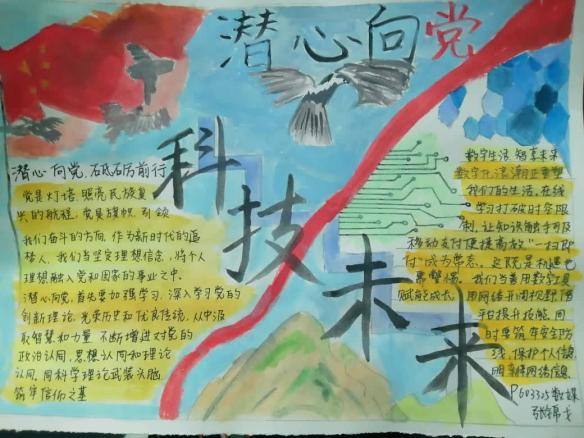 潜心向党
科技未来
潜心向党,砥砺前行
党是灯塔,照亮民族复
兴的航程;党是旗帜,引领
我们奋斗的方向。作为新时代的追
梦人,我们当坚定理想信念,将个人
理想融入党和国家的事业之中。
潜心向党,首先要加强学习,深入学习党的
创新理论、光荣历史和优良传统,从中汲
取智慧和力量,不断增进对党的
政治认同、思想认同和理论
认同,用科学理论武装头脑,
筑牢信仰之基
数字生活,智享未来
数字化浪潮正重塑
我们的生活,在线
学习打破时空限
制,让知识触手可及
移动支付便捷高效,“一扫即
付”成为常态。这既是机遇也
是警惕。我们当善用数字工具
赋能成长,用网络开阔视野,
提升技能,同
时要筑牢安全防
线,保护个人信息
P603325数媒